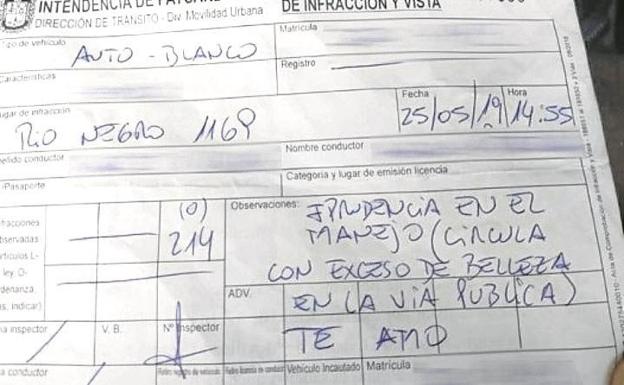 INTENDENCIA DE
DE INFRACCIÓN Y VISTA
DIRECCIÓN DE TRÁNSITO - Div. Movilidad Urbana
Tipo de vehículo
AUTO - BLANCO
Matrícula
Características
Registro
Lugar de infracción
RIO NEGRO 1169
Fecha
25/05/19
Hora
14:55
Apellido conductor
Nombre conductor
Pasaporte
Categoría y lugar de emisión licencia
(0)
214
Observaciones:
IPRUDENCIA EN EL
MANEJO (CIRCULA
CON EXCESO DE BELLEZA
EN LA VIA PUBLICA)
TE AMO
ADV.
inspector
V. B.
Nº Inspector
conductor
Vehículo Incautado
Matrícula